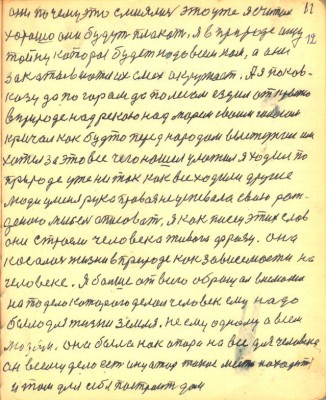 они почему это смиялись это уже я считал 12
хорошо они будут плакать, я в природе ищу 12
тайну которая будет надо всеми нам, а они
закаталы смех окружает. А я по кав-
казу да по горам да по лесам ездил
в природе над рекою над морем своим голосом
кричал как будто перед народам выступал им
хотел за это все чего нашел уложил я ходил по
природе уже ни так как все ходили другие
люди у меня рука правая неуспевала свою рож-
денаю мысль описовать, я как писец этих слов
они строили человека живого фразу. она
косалась жизни в природе как зависемости на
человеке. Я больше от всего обращал внемание
на то дело которого делал человек ему надо
было для жизни земля. не ему одному а всем
людям. она была как опора на все для человека
он всему делу есть инециатор такое место находит
и там для себя построит дом